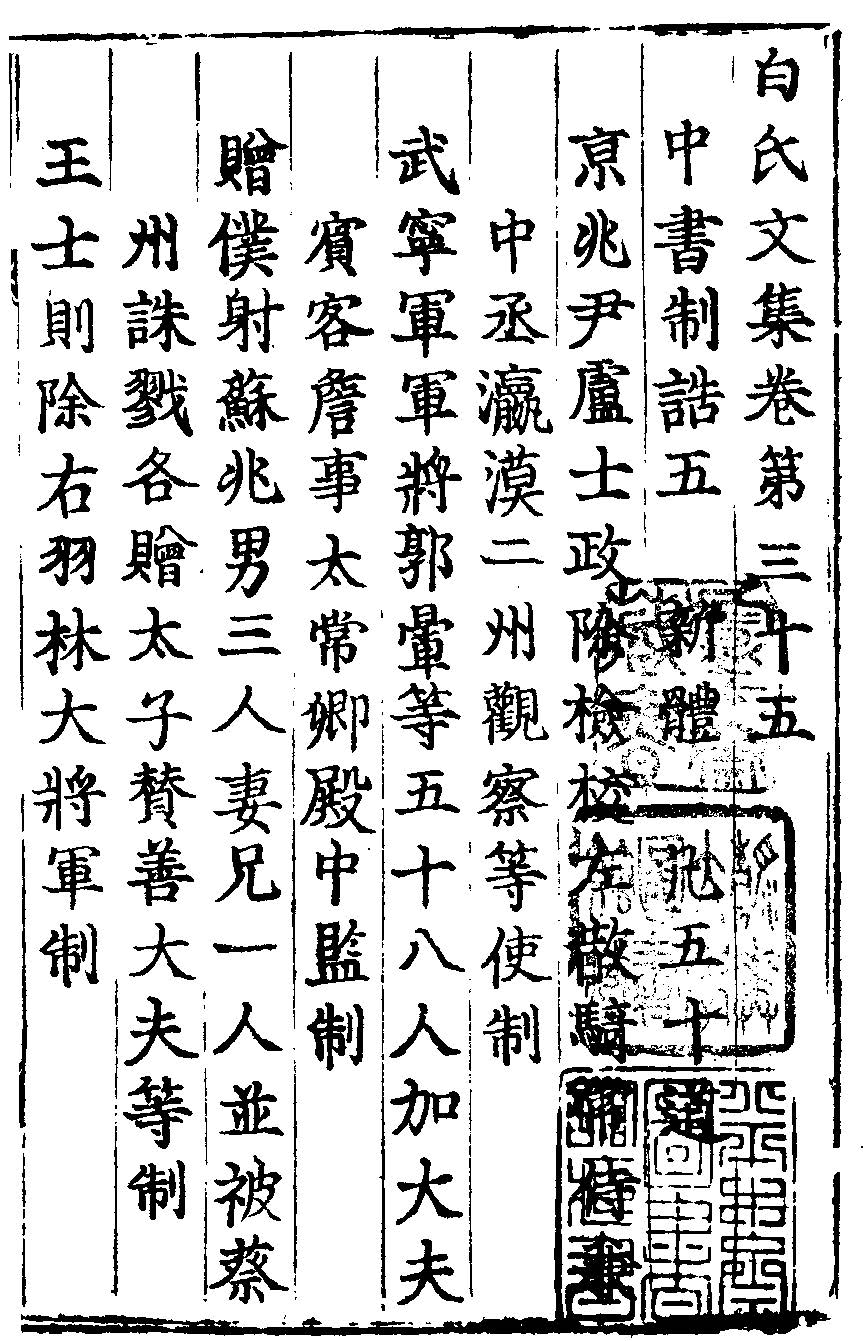 白氏文集卷第三十五
中書制誥五　新體　凡五十道
京兆尹盧士政除檢校左散騎常侍兼
中丞瀛漠二州觀察等使制
武寧軍軍將郭暈等五十八人加大夫
賓客詹事太常卿殿中監制
贈僕射蘇兆男三人妻兄一人並被蔡
州誅戮各贈太子贊善大夫等制
王士則除右羽林大將軍制